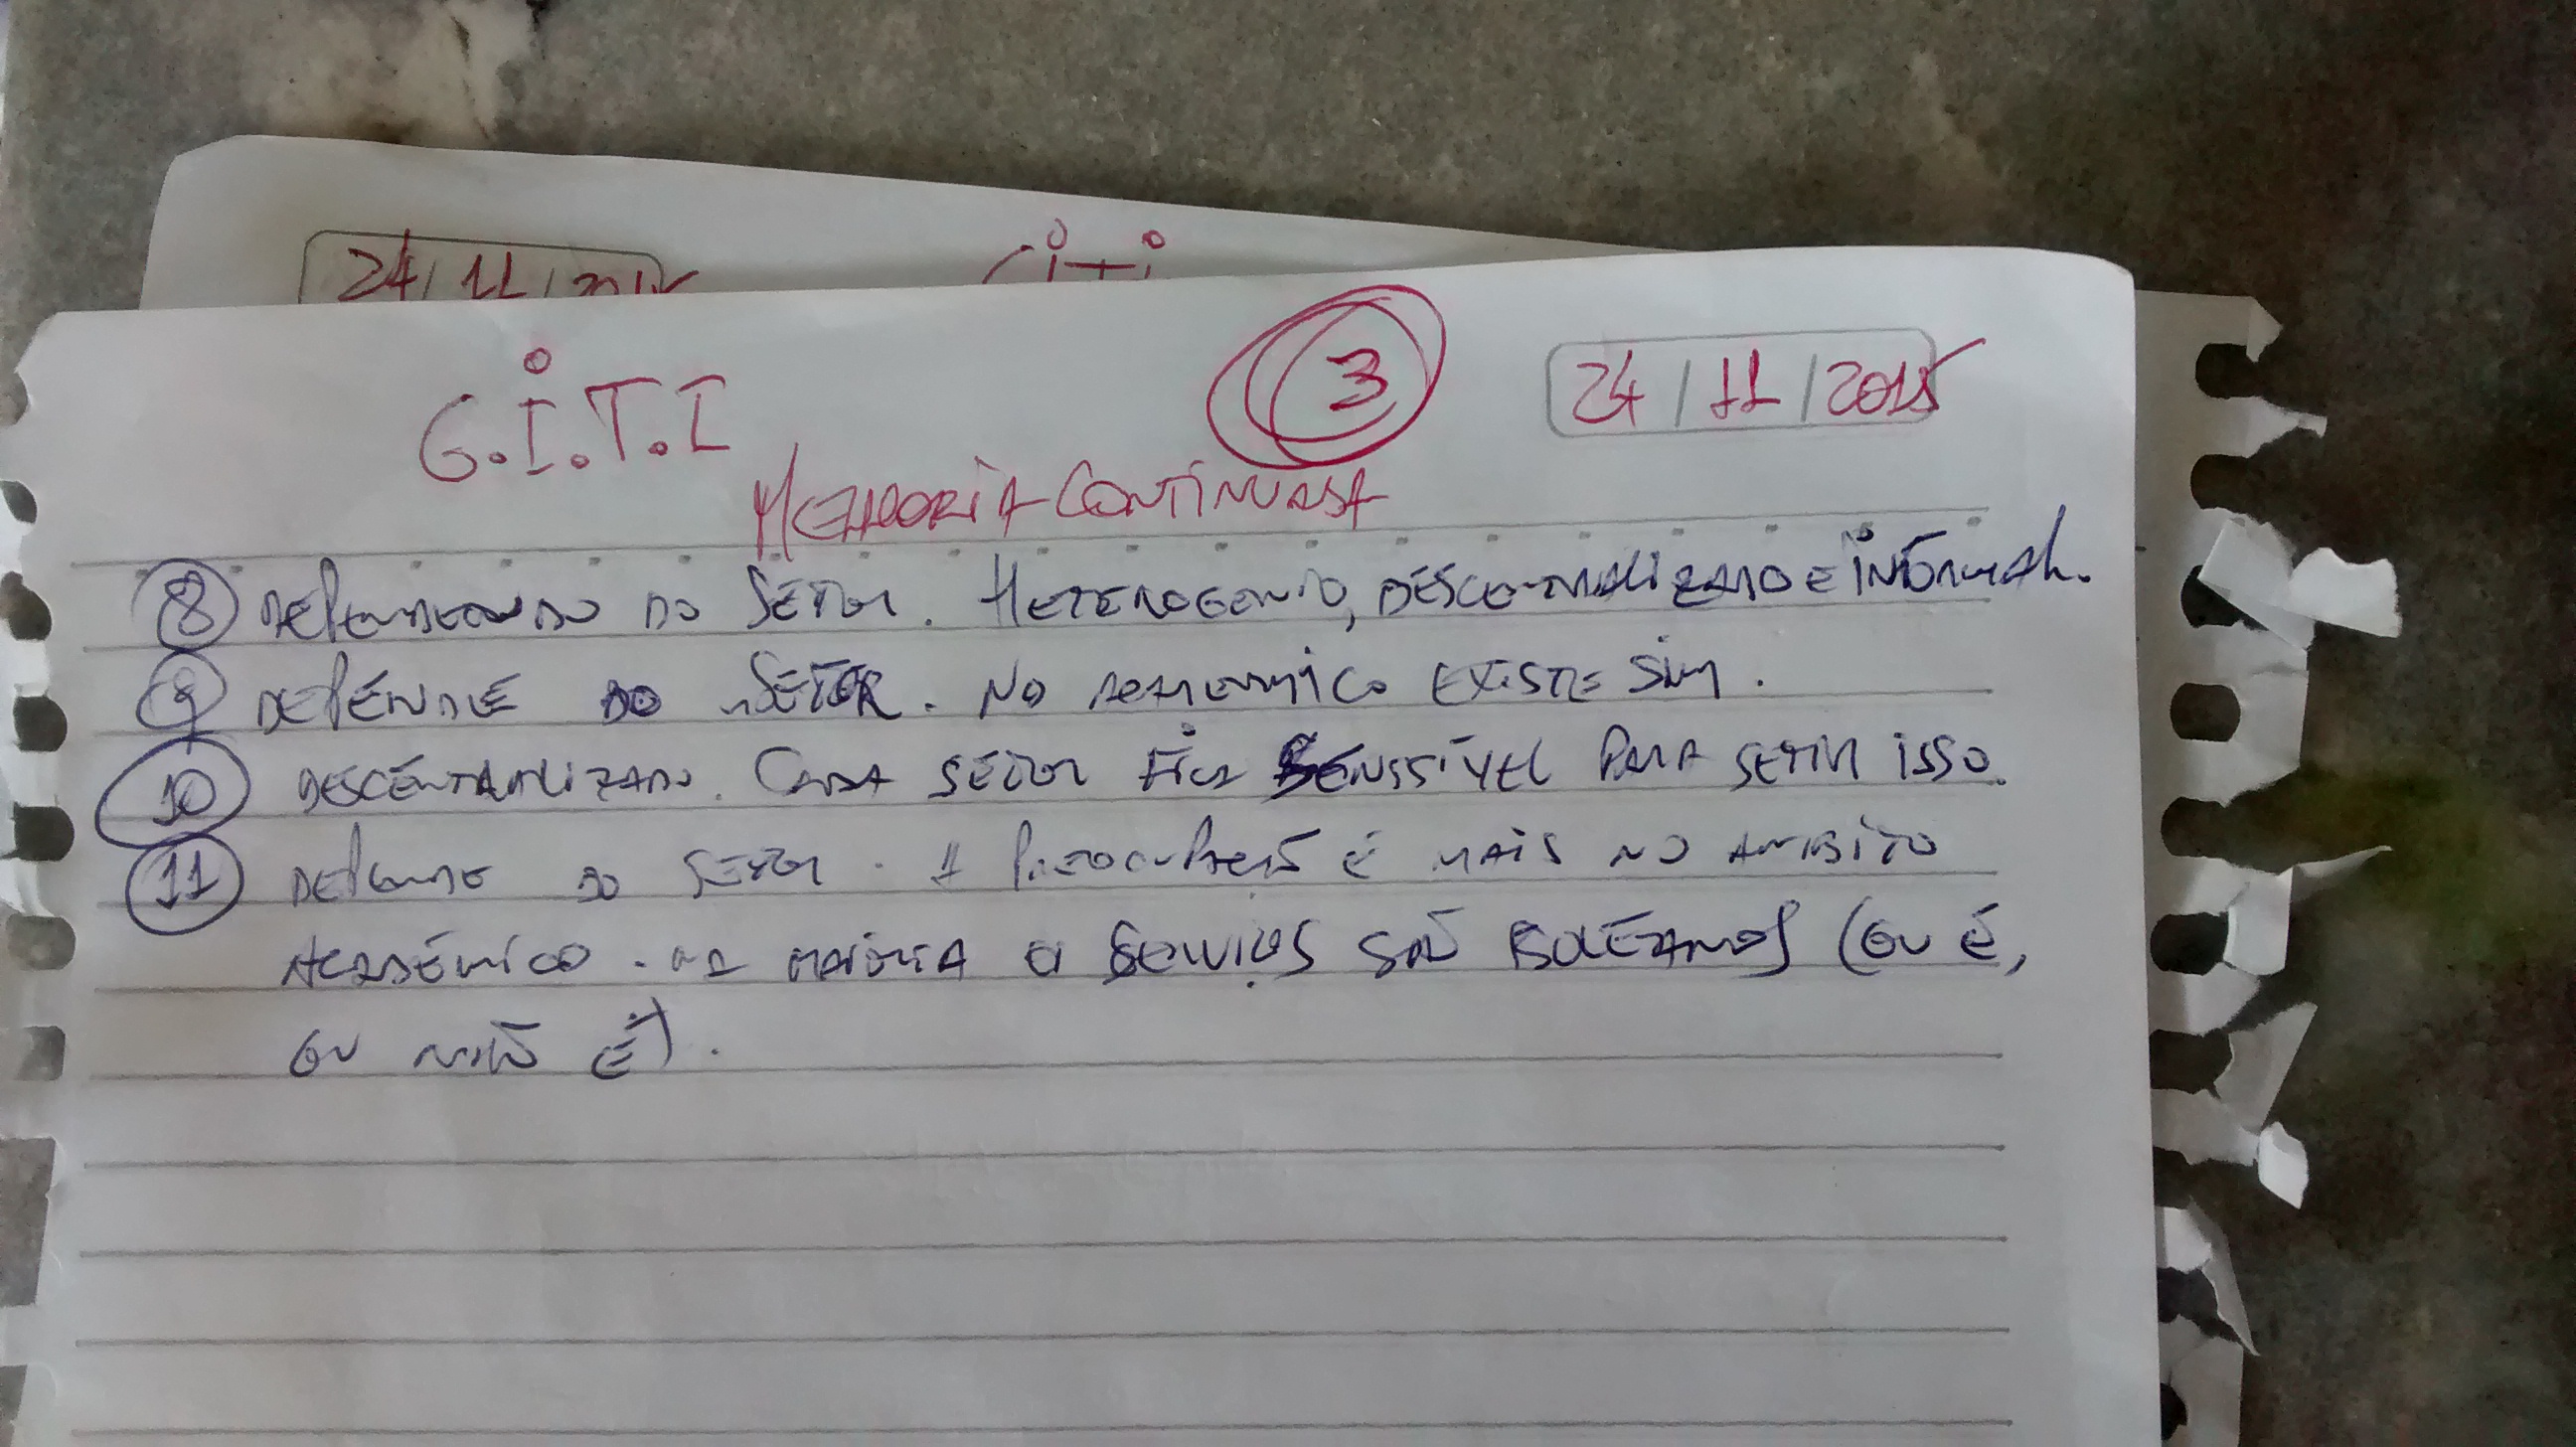 24/11/2015
G.I.T.I
3
24/11/2015
MELHORIA CONTINUADA
8 DEPENDENDO DO SETOR. HETEROGENIO, DESCENTRALIZADO E INFORMAL.
9 DEPENDE DO SETOR. NO ACADEMICO EXISTE SIM.
10 DESCENTRALIZADO. CADA SETOR FICA SENSSÍVEL PARA SETIR ISSO.
11 DEPENDE DO SETOR. A PREOCUPAÇÃO É MAIS NO AMBITO
ACADÊMICO. NA MAIORIA OS SERVIÇOS SÃO BOLEANOS (OU É,
OU NÃO É).